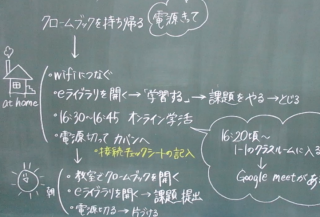 クロームブックを持ち帰る
電源きって
at home
・wifiにつなぐ
・eライブラリを開く→「学習する」→課題をやる→とじる
・16:30〜16:45 オンライン学活
・電源切って カバンへ
・接続チェックシートの記入
16:20頃〜
1-1のクラスルームに入る
Google meetがあ
朝
・教室でクロームブックを開く
・eライブラリを開く→課題提出
・電源切る→片づける